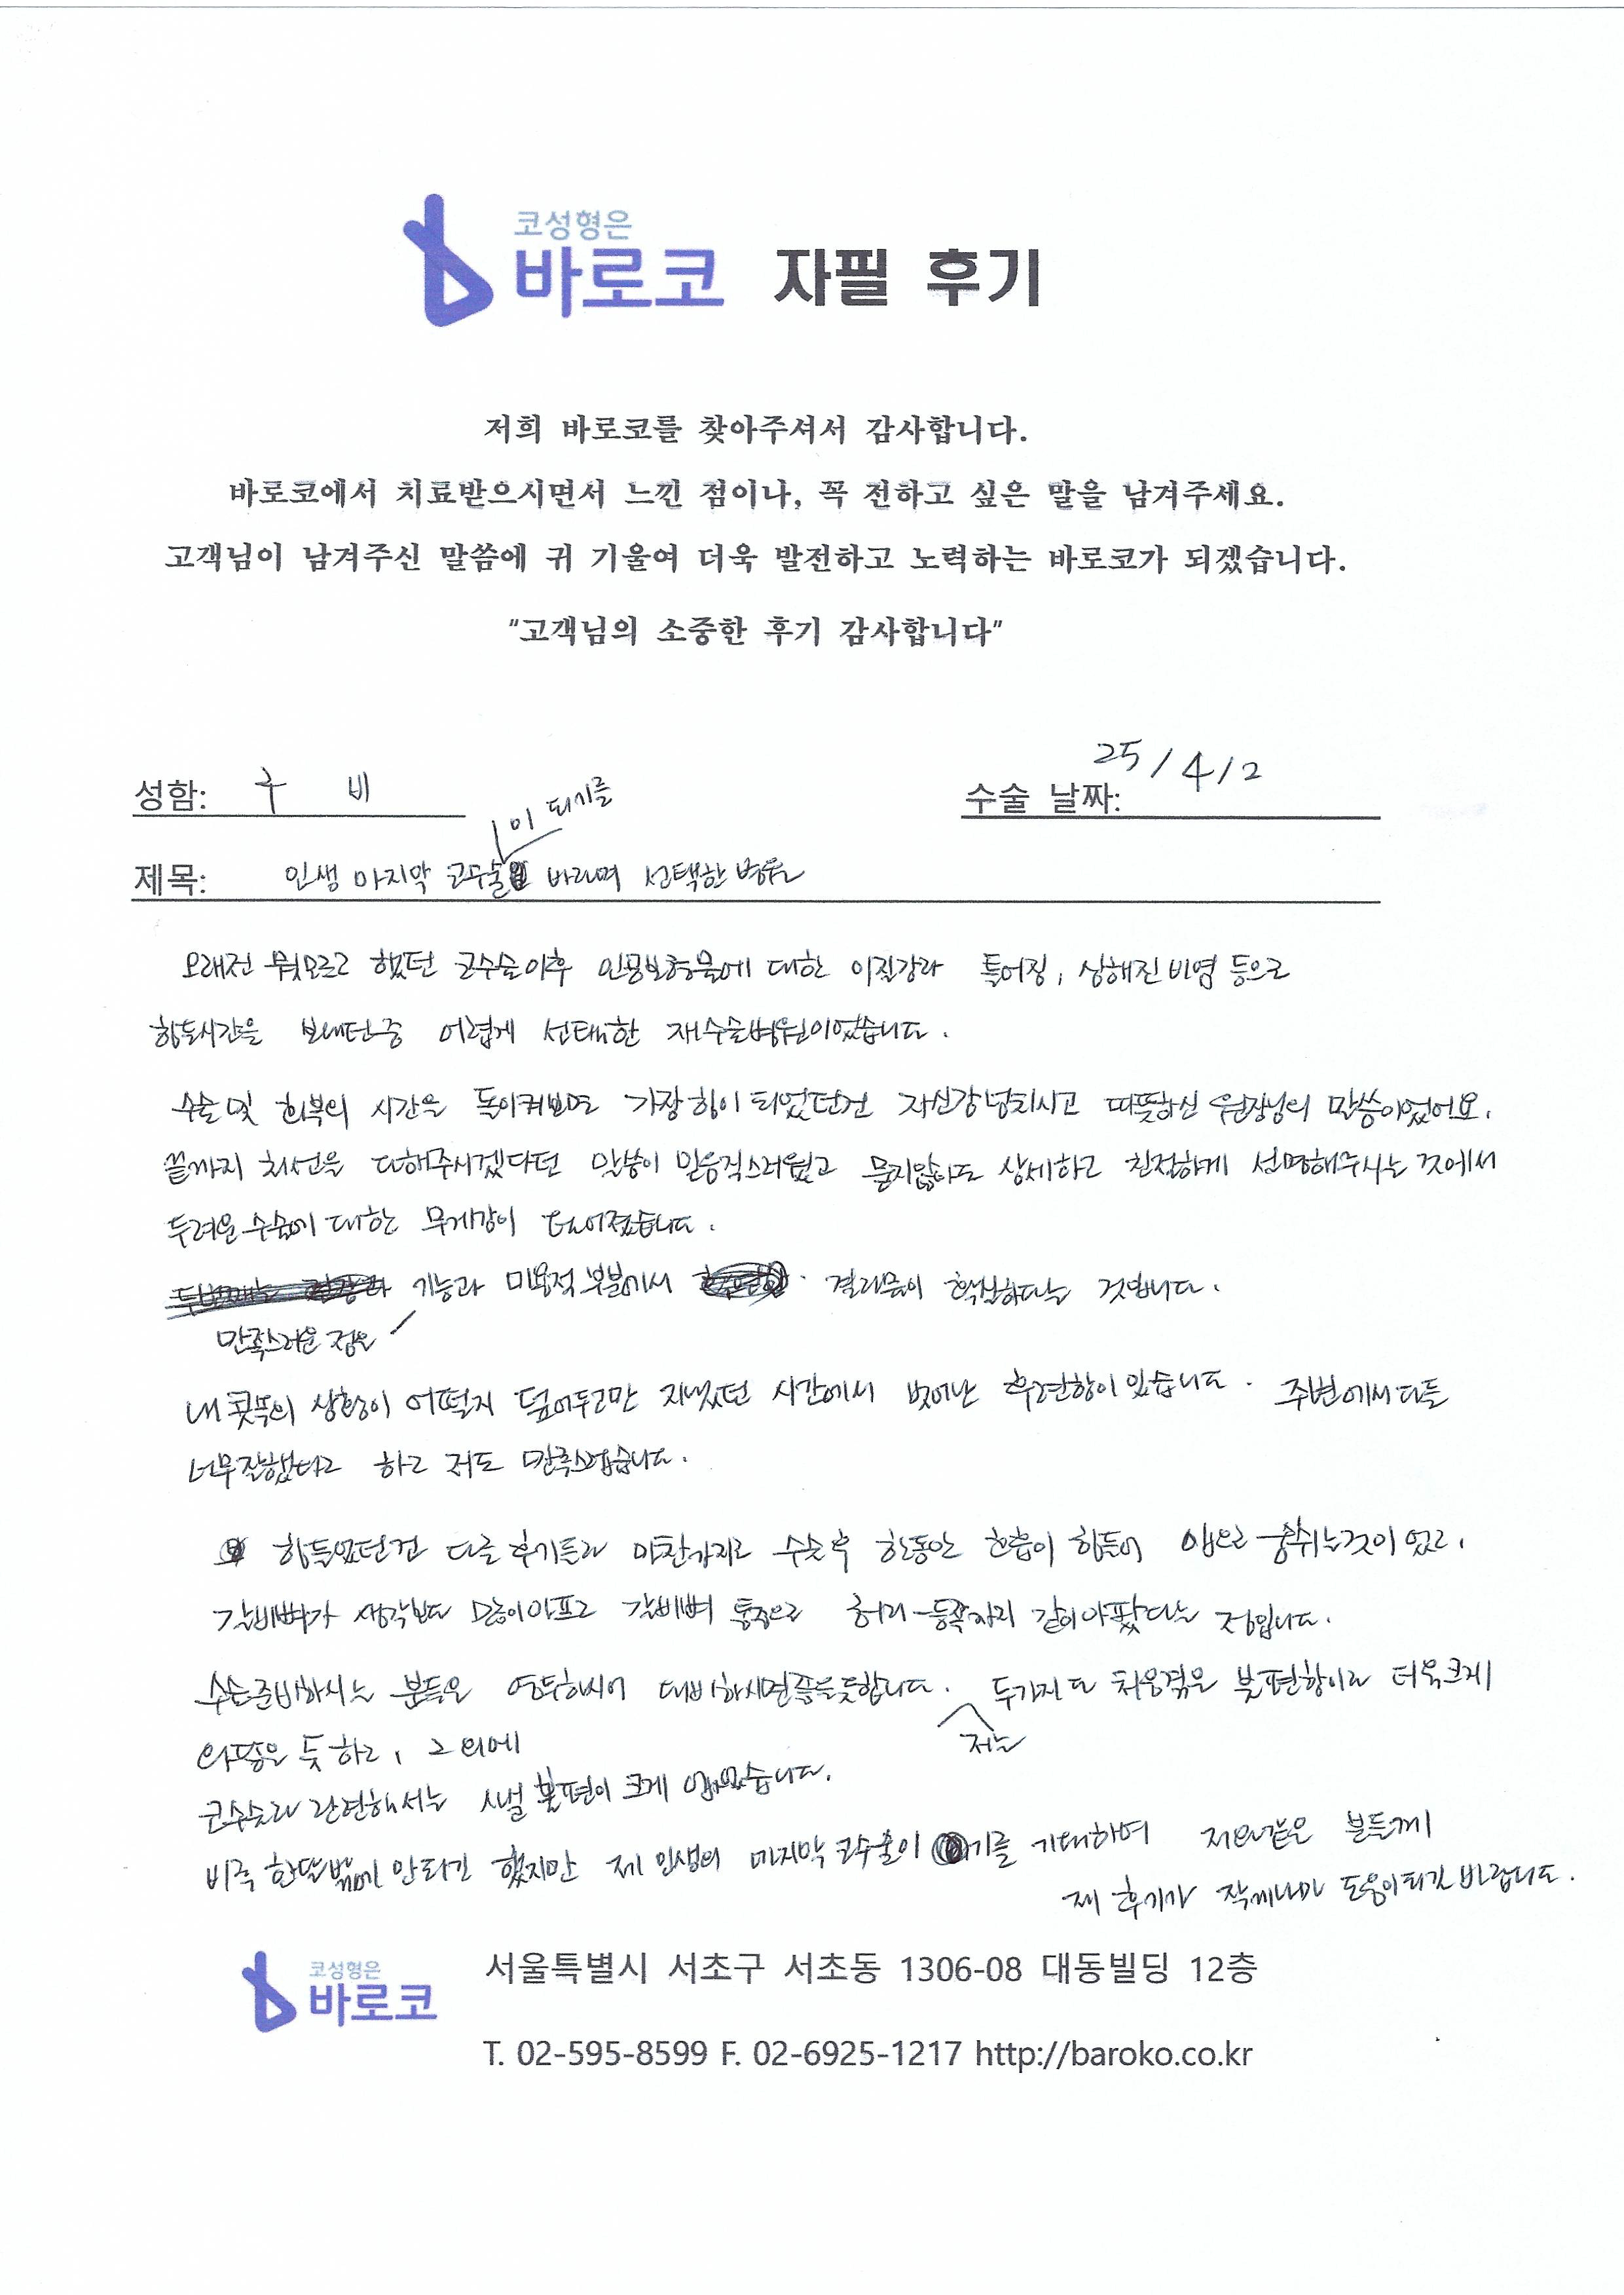 코성형은
바로코 자필 후기
저희 바로코를 찾아주셔서 감사합니다.
바로코에서 치료받으시면서 느낀 점이나, 꼭 전하고 싶은 말을 남겨주세요.
고객님이 남겨주신 말씀에 귀 기울여 더욱 발전하고 노력하는 바로코가 되겠습니다.
"고객님의 소중한 후기 감사합니다"
성함: 구 비 수술 날짜: 25/4/2
이 되기를
제목: 인생 마지막 코수술 바라며 선택한 병원
오래전 뭣모르고 했던 코수술이후 인공보형물에 대한 이질감과 틀어짐, 심해진 비염 등으로
힘든시간을 보내던중 어렵게 선택한 재수술병원이었습니다.
수술 및 회복의 시간을 돌이켜보면 가장 힘이 되었던건 자신감 넘치시고 따뜻하신 원장님의 말씀이었어요.
끝까지 최선을 다해주시겠다던 말씀이 믿음직스러웠고 묻지않아도 상세하고 친절하게 설명해주시는 것에서
두려운 수술에 대한 무게감이 덜어졌습니다.
기능과 미용적 부분에서 결과물이 확실하다는 것입니다.
만족스러운 점은
내 콧속의 상황이 어떨지 덮어두고만 지냈던 시간에서 벗어난 후련함이 있습니다. 주변에서 다들
너무잘했다고 하고 저도 만족스럽습니다.
힘들었던건 다른 후기들과 마찬가지로 수술후 한동안 호흡이 힘들어 입으로 숨쉬는것이 었고,
갈비뼈가 생각보다 많이아프고 갈비뼈 통증으로 허리-등쪽까지 같이아팠다는 점입니다.
수술준비하시는 분들은 염두하시어 대비하시면좋을듯합니다. 두가지 다 처음겪은 불편함이라 더욱크게
저는
와닿은 듯 하고, 그 외에
코수술과 관련해서는 시설 불편이 크게 없었습니다.
비록 한달밖에 안되긴 했지만 제 인생의 마지막 코수술이 기를 기대하며 저와같은 분들께
제 후기가 작게나마 도움이되길 바랍니다.
코성형은
바로코
서울특별시 서초구 서초동 1306-08 대동빌딩 12층
T. 02-595-8599 F. 02-6925-1217 http://baroko.co.kr